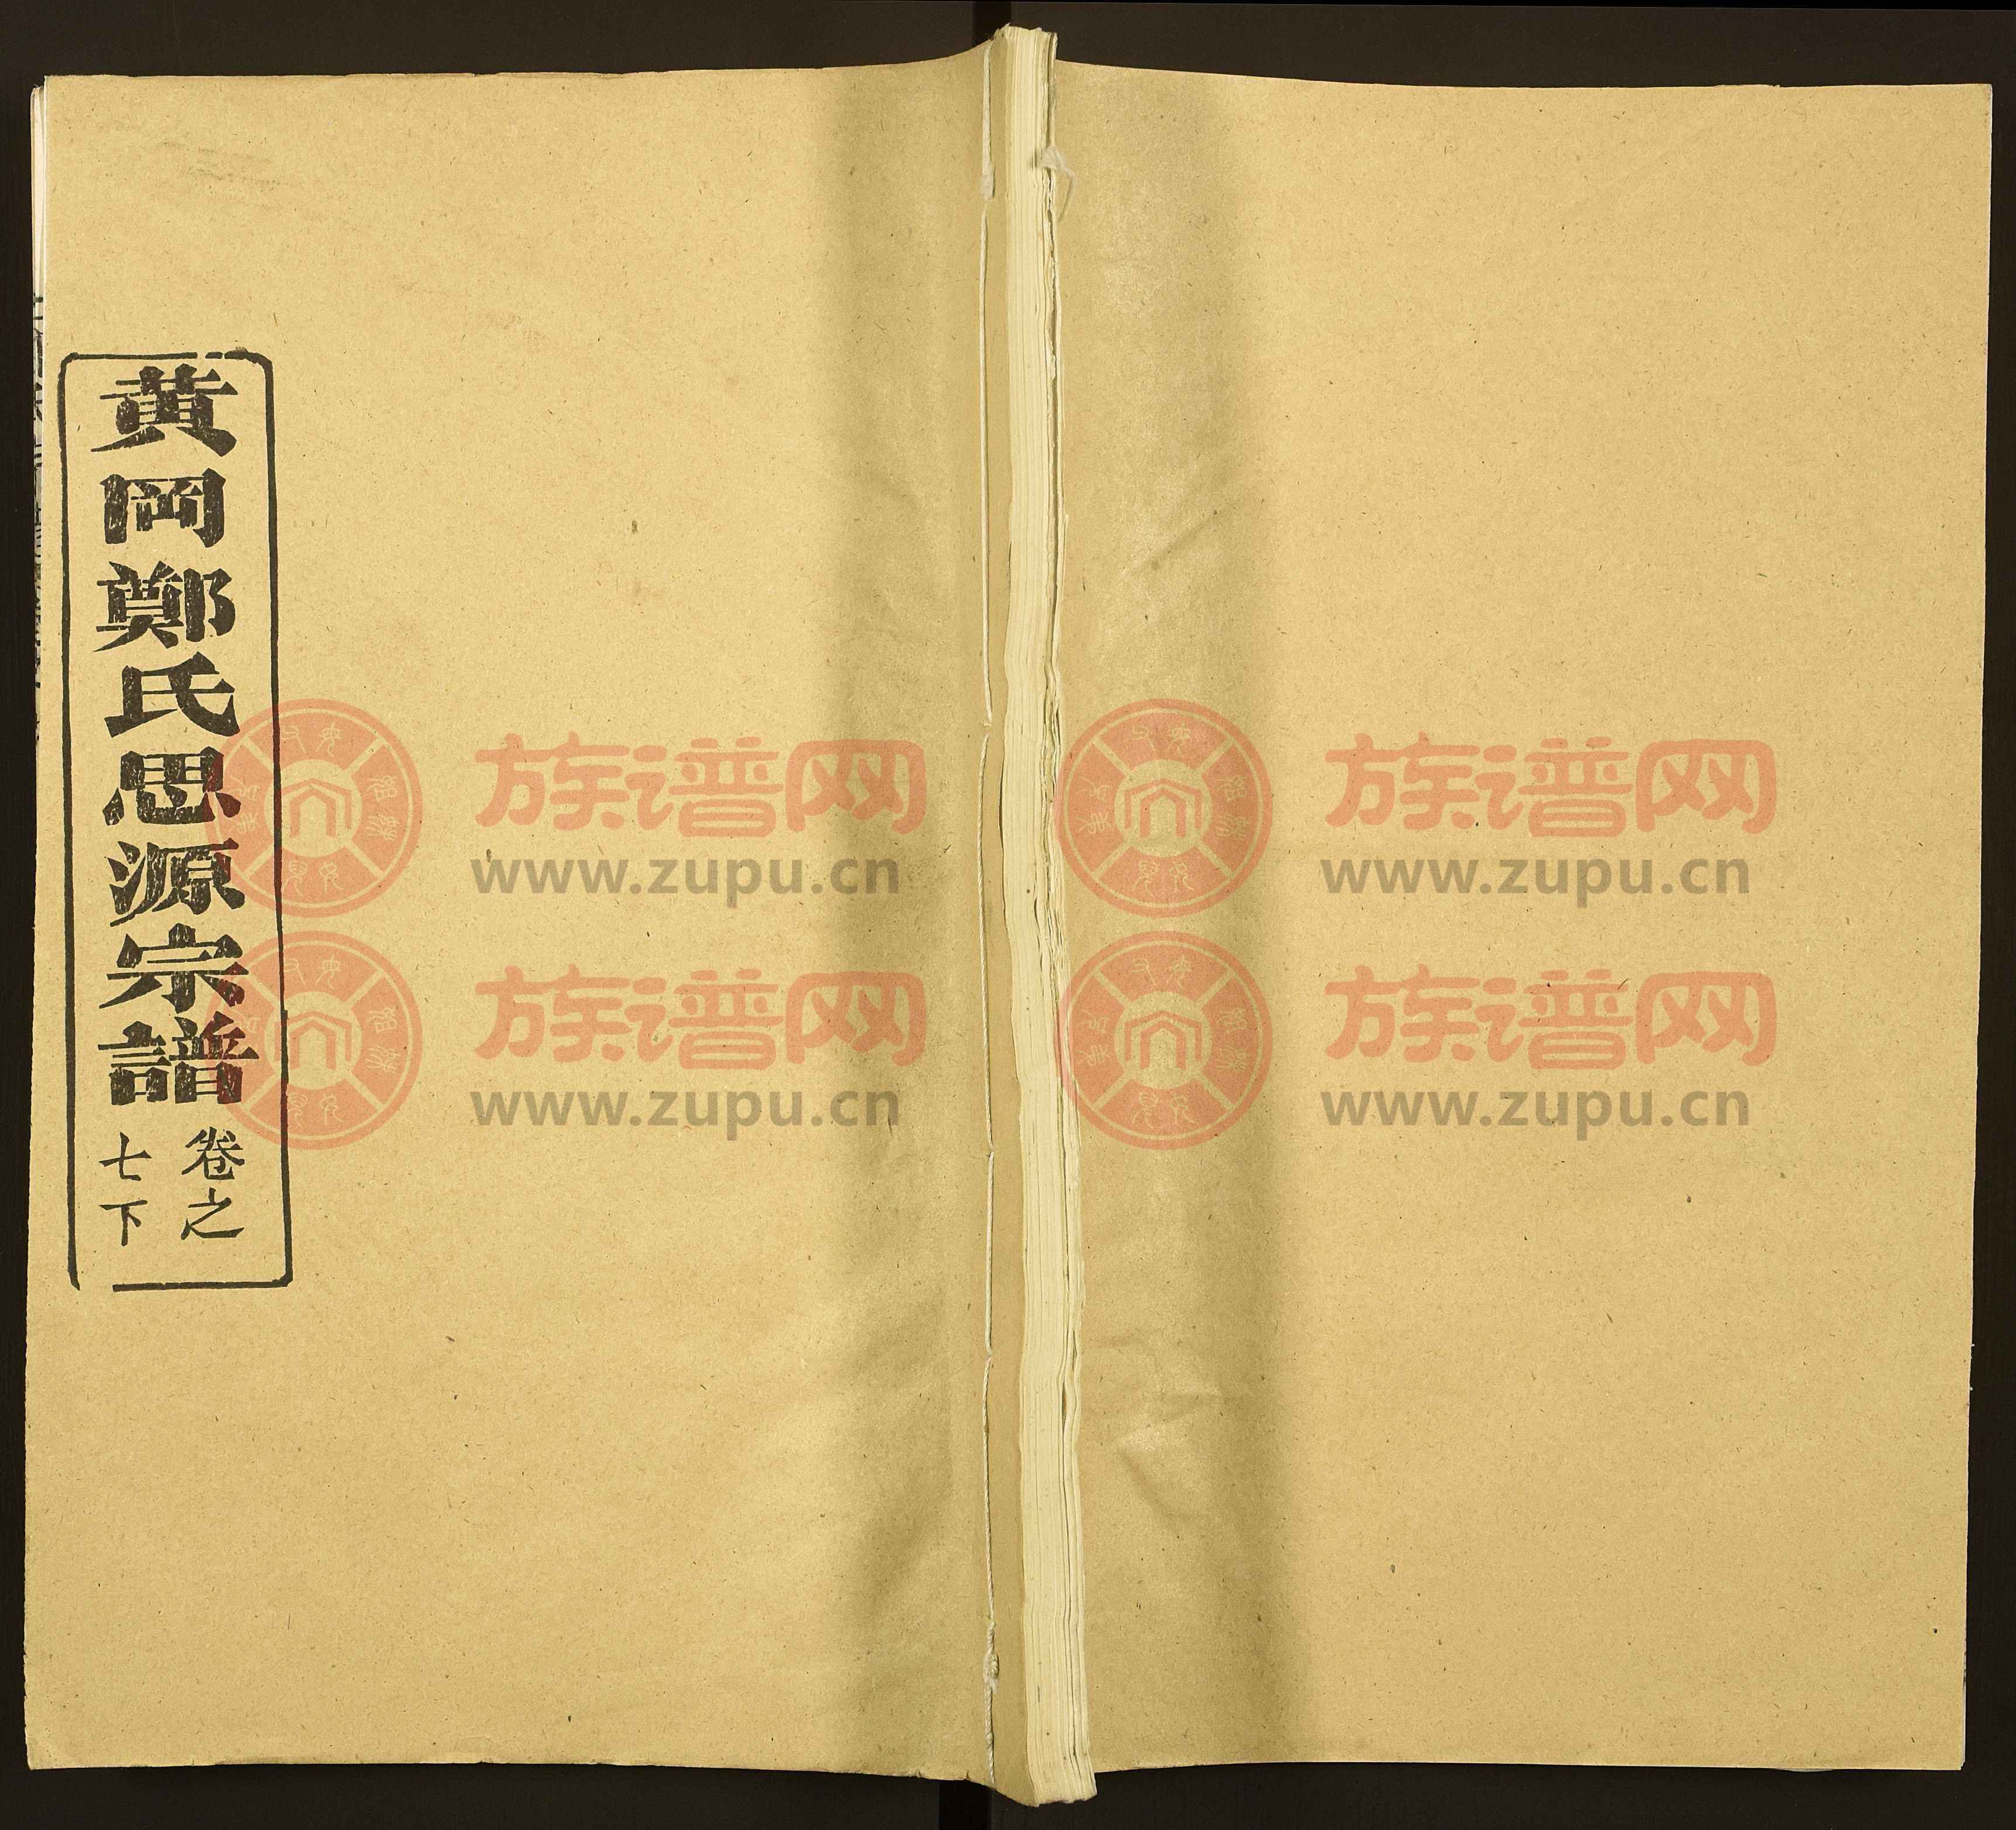 黄岡鄭氏思源宗譜
卷之
七下
族谱网
www.zupu.cn
族谱网
www.zupu.cn
族谱网
www.zupu.cn
族谱网
www.zupu.cn